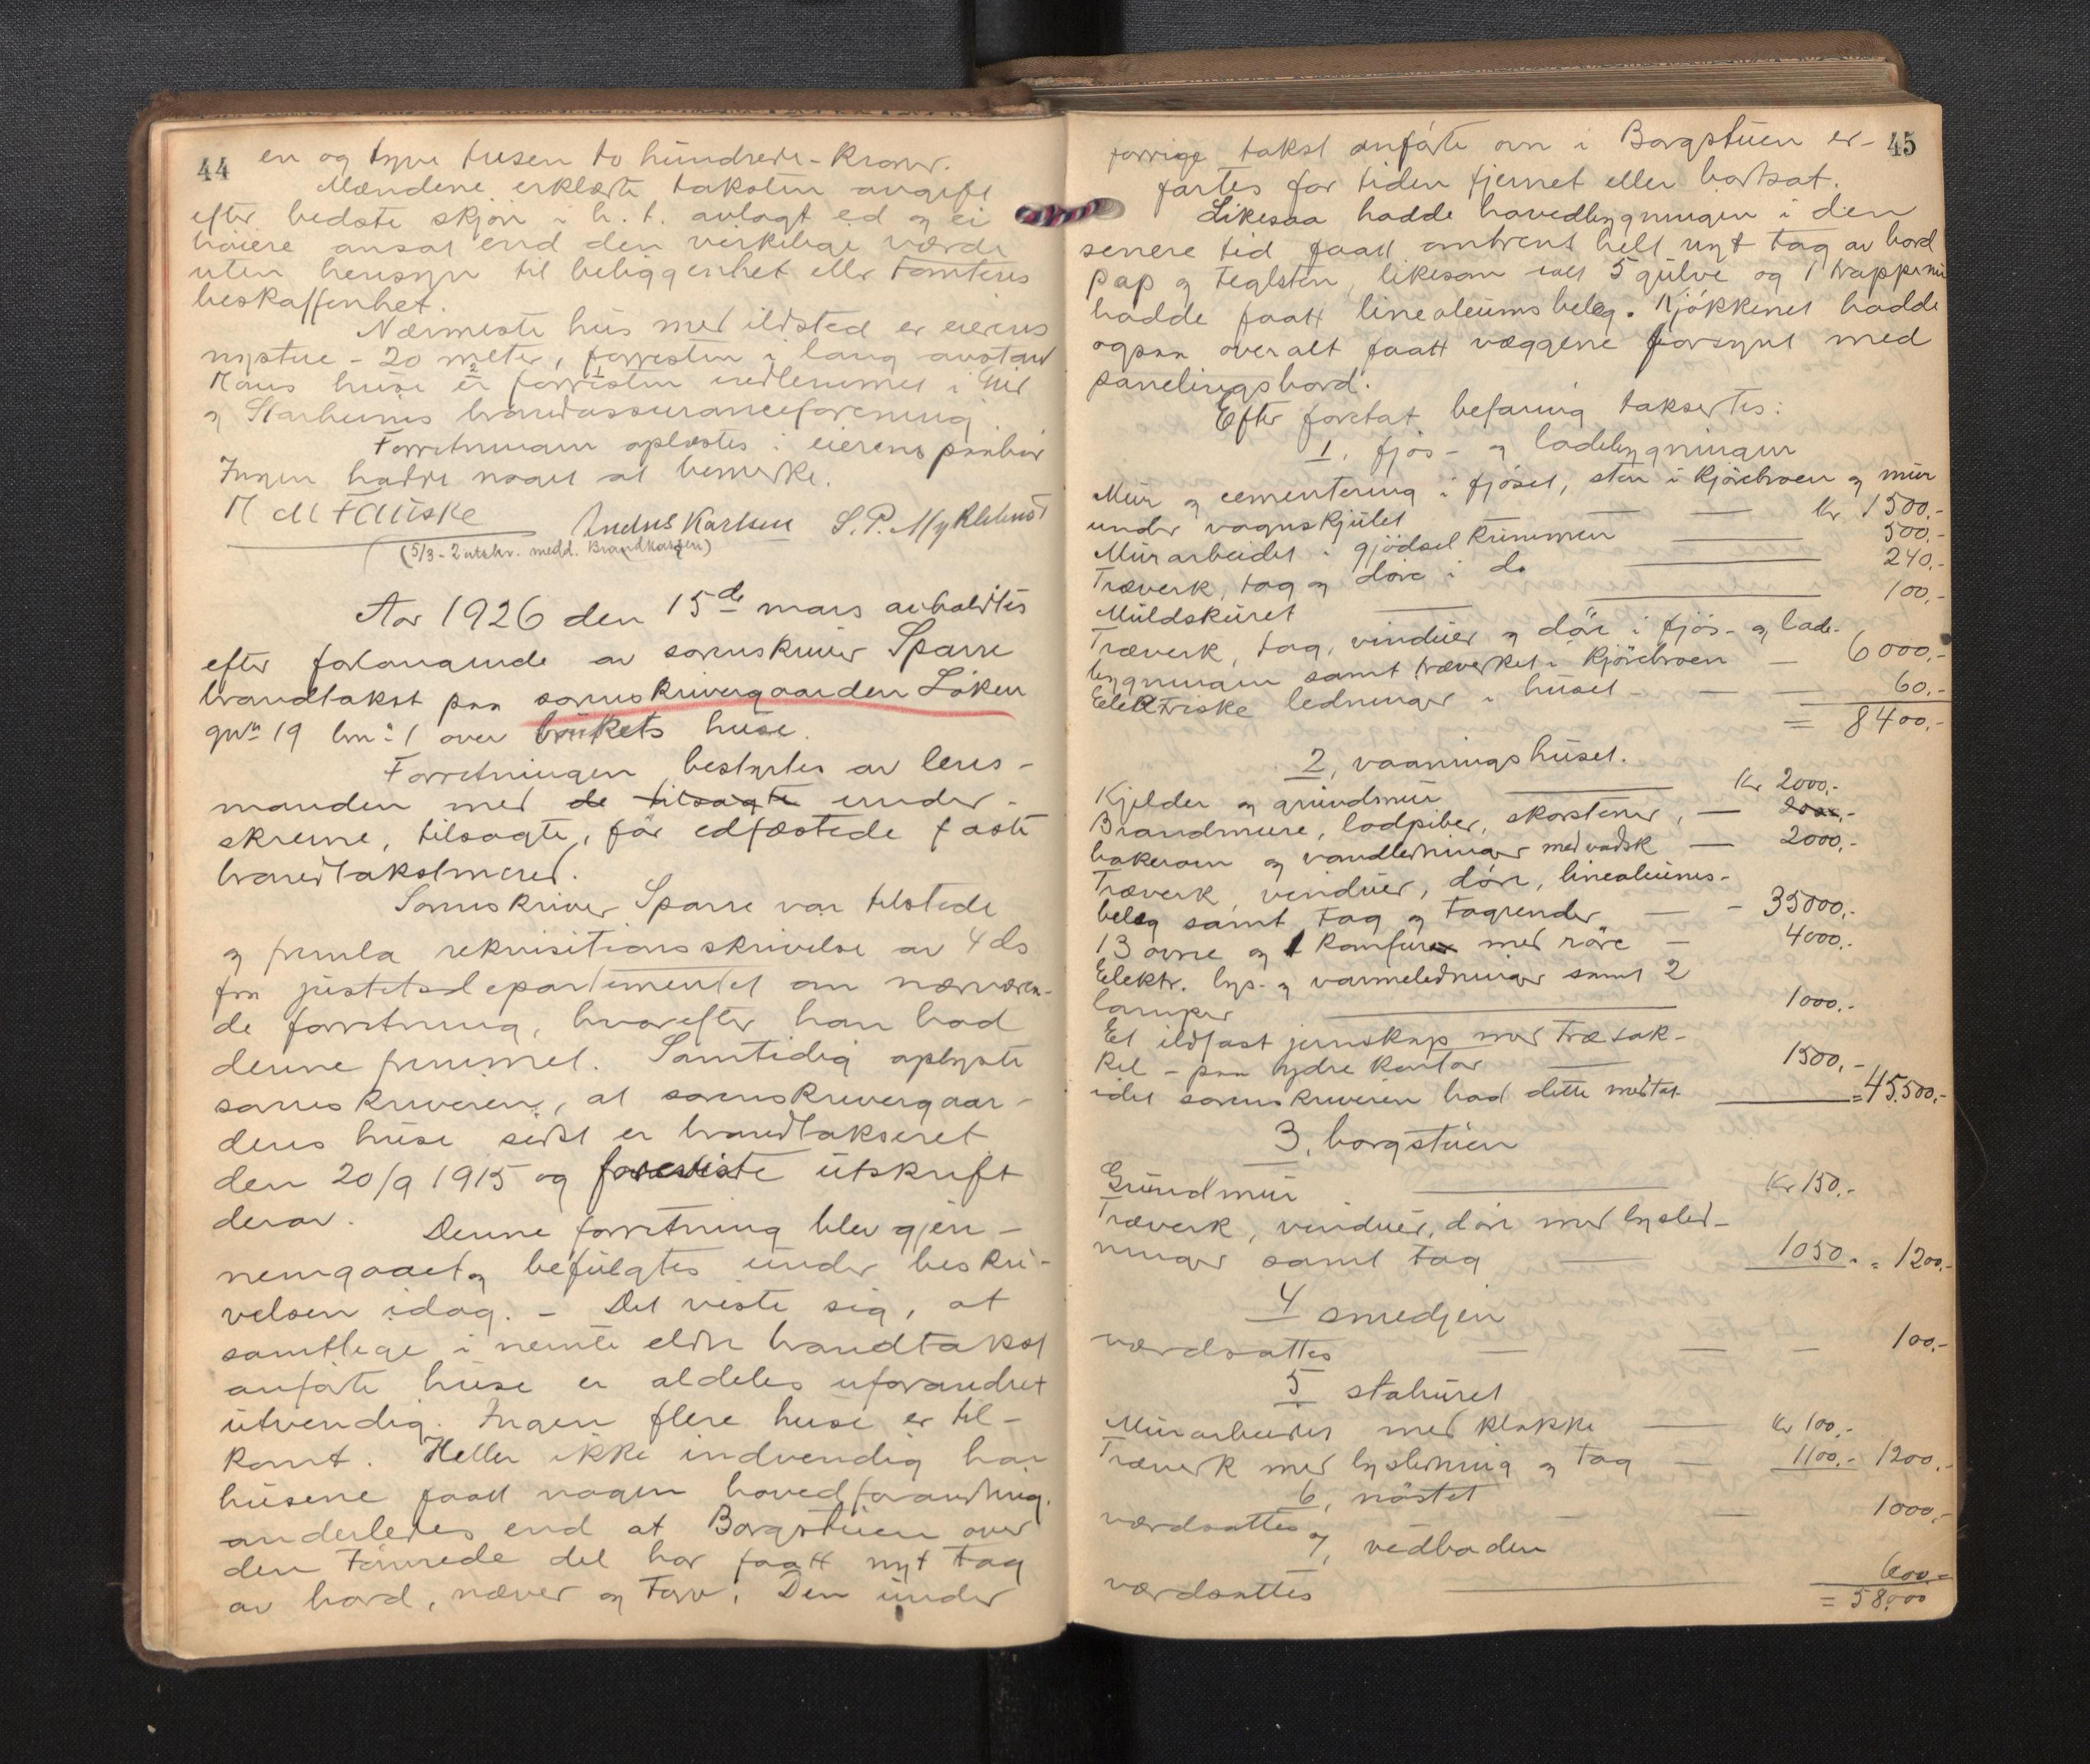 44
en og tyve tusen to hundrede - kroner.
Mændene erklærte taksten avgift
efter bedste skjøn i h. t. avlagt ed og ei
høiere ansat end den virkelige værdi
uten hensyn til beliggenhet eller tomtens
beskaffenhet.
Nærmeste hus med ildsted er eierens
nystue - 20 meter, forresten i lang avstand
Hans huse er forresten indlemmet i
og Starheims brandassuranceforening
Forretningen oplæstes i eierens paahør
Ingen hadde noget at bemerke.
Fauske Andreas Karlsen S. P. Myklebust
(5/3 - 2 utskr. medd. Brandkassen)
Aar 1926 den 15de mars avholdtes
efter forlangende av sorenskriver Sparre
brandtakst paa sorenskrivergaarden Løken
gnr 19 brn: 1 over brukets huse.
Forretningen bestyrtes av lens-
manden med de tilsagte under-
skrevne, tilsagte, før edfæstede faste
brandtakstmænd.
Sorenskriver Sparre var tilstede
og fremla rekvisitionsskrivelse av 4 ds
fra justisdepartementet om nærværen-
de forretning, hvorefter han bad
denne fremmet. Samtidig oplyste
sorenskriveren, at sorenskrivergaar-
dens huse sidst er brandtakseret
den 20/9 1915 og foreviste utskrift
derav.
Denne forretning blev gjen-
nemgaaet og befulgtes under beskri-
velsen idag. - Det viste sig, at
samtlige i nevnte eldre brandtakst
anførte huse er aldeles uforandret
utvendig. Ingen flere huse er til-
komt. Heller ikke indvendig har
husene faatt nogen hovedforandring.
anderledes end at Borgstuen over
den tømrede del har faatt nyt tag
av bord, næver og torv. Den under
45
forrige takst anførte ovn i Borgstuen er-
fartes for tiden fjernet eller bortsat.
Likesaa hadde hovedbygningen i den
senere tid faatt omtrent helt nyt tag av bord
pap og teglsten, likesom ialt 5 gulve og 1 trapp
hadde faatt linealeumsbelæg. Kjøkkenet hadde
ogsaa overalt faatt væggene forsynt med
panelingsbord.
Efter foretat befaring taksertes:
1, fjøs- og ladebygningen
Mur og cementering i fjøset, sten i kjørebroen og mur
under vognskjulet — — kr 1500.-
Murarbeidet i gjødselkummen — 500.-
Træverk, tag og døre i do — 240.-
Muldskuret — 100.-
Træverk, tag, vinduer og døre i fjøs- og lade-
bygningen samt træverket i kjørebroen — 6000.-
Elektriske ledninger i huset - — — 60.-
= 8400.-
2, vaaningshuset.
Kjelder og grundmur — kr 2000.-
Brandmure, lodpiber, skorstener, —
bakerovn og vandledninger med vadsk — 2000.-
Træverk, vinduer, døre, linealeums-
belæg samt tag og tagrender — - 35000.-
13 ovne og 1 komfur med røre — 4000.-
Elektr. lys- og varmeledninger samt 2
lamper — 1000.-
Et ildfast jernskap med træsok-
kel - paa ydre kontor — 1500.-
idet sorenskriveren bad dette medtat — = 45.500.-
3, borgstuen
Grundmur — kr 150.-
Træverk, vinduer, døre med lysled-
ninger samt tag — 1050.- = 1200.-
4 smedjen
værdsattes — — — 100.-
5 staburet
Murarbeidet med klokke — kr 100.-
Træverk med lysledning og tag — 1100.- 1200.-
6, nøstet
værdsattes — — 1000.-
7, vedboden
værdsattes — 600.-
= 58,000